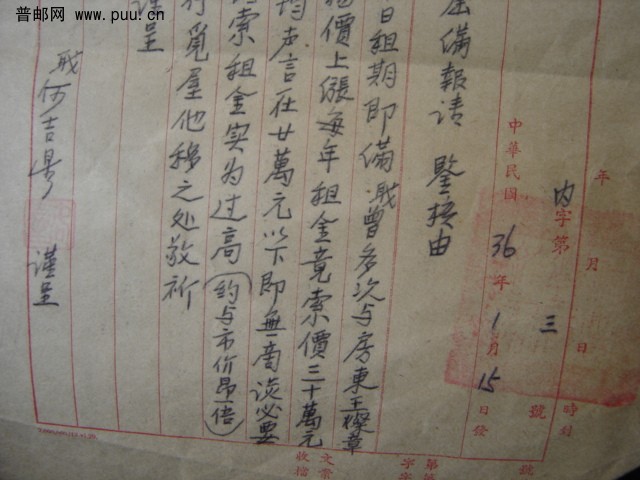 普邮网 www.puu.cn
年 月 日 時 封
內字第 三 號
中華民國 36 年 1 月 15 日發
屆備報请 鑒核由
日租期即備 戝曾多次与房東王檪章
物價上漲每年租金竟索價三十萬元
均声言在廿萬元以下即無商談必要
索租金实为过高(約与市价昂一倍)
行覓屋他移之处敬祈
谨呈
戝何吉景 谨呈
收 文
檔 案
字 第
號